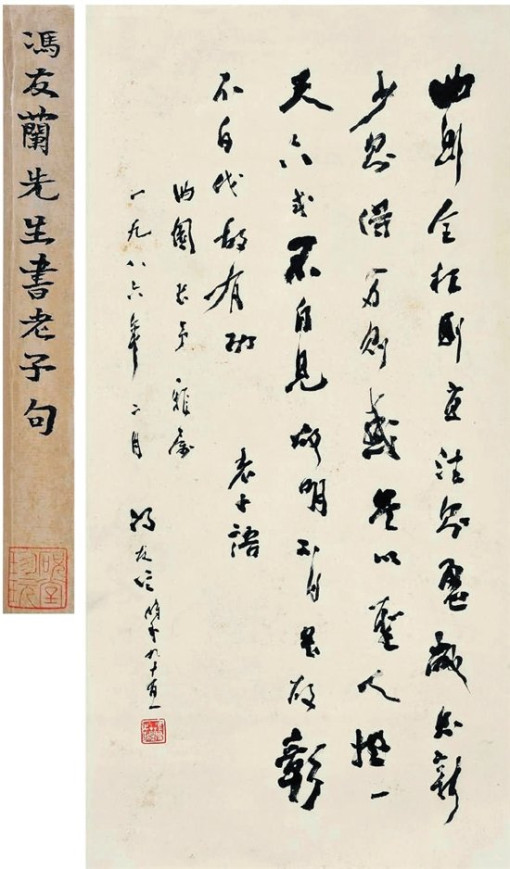 馮友蘭先生書老子句
曲則全枉則直洼則盈敝則新
少則得多則惑是以聖人抱一
天下式不自見故明不自是故彰
不自伐故有功
老子語
雅屬
一九八六年二月
冯友兰時年九十有一